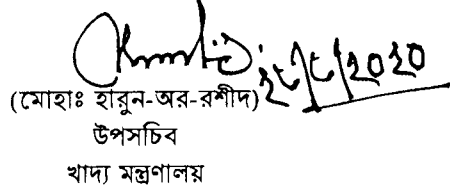 ২৮/৮/২০২০
(মোহাঃ হারুন-অর-রশীদ)
উপসচিব
খাদ্য মন্ত্রণালয়